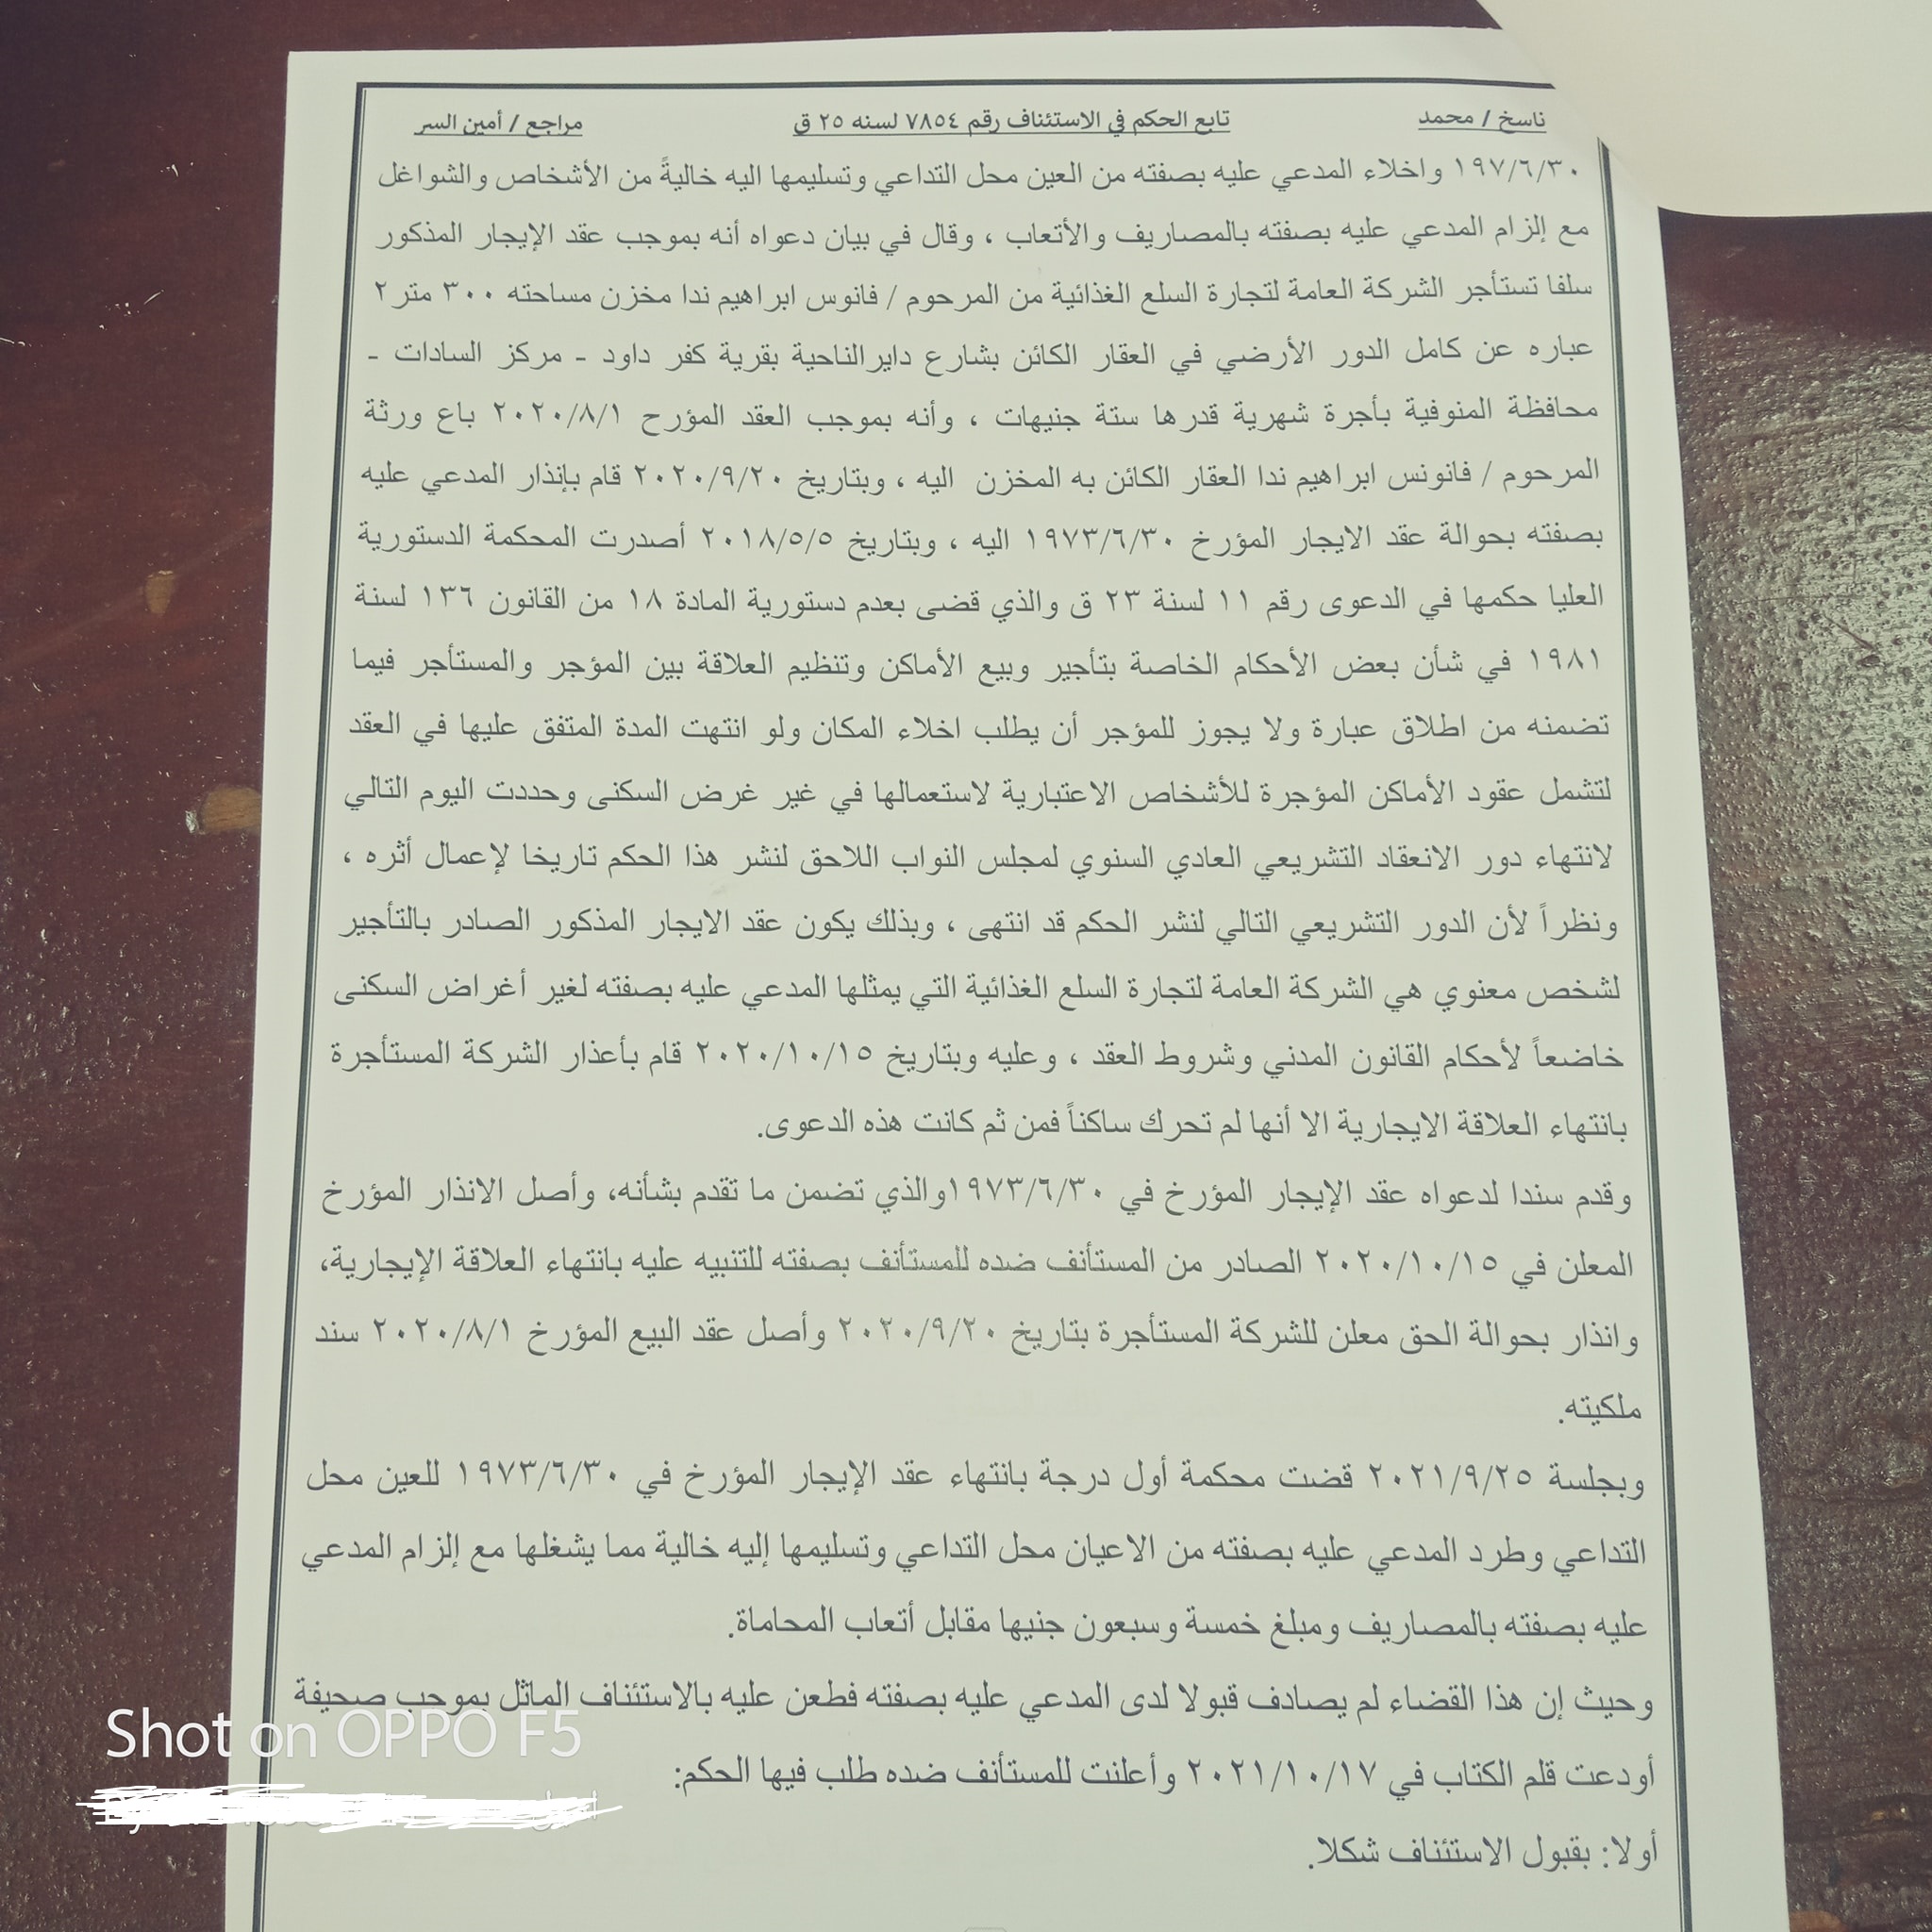 ناسخ / محمد تابع الحكم في الاستئناف رقم ٧٨٥٤ لسنه ٢٥ ق مراجع / أمين السر
١٩٧/٦/٣٠ واخلاء المدعي عليه بصفته من العين محل التداعي وتسليمها اليه خاليةً من الأشخاص والشواغل
مع إلزام المدعي عليه بصفته بالمصاريف والأتعاب ، وقال في بيان دعواه أنه بموجب عقد الإيجار المذكور
سلفا تستأجر الشركة العامة لتجارة السلع الغذائية من المرحوم / فانوس ابراهيم ندا مخزن مساحته ٣٠٠ متر٢
عباره عن كامل الدور الأرضي في العقار الكائن بشارع دايرالناحية بقرية كفر داود - مركز السادات -
محافظة المنوفية بأجرة شهرية قدرها ستة جنيهات ، وأنه بموجب العقد المؤرح ٢٠٢٠/٨/١ باع ورثة
المرحوم / فانونس ابراهيم ندا العقار الكائن به المخزن اليه ، وبتاريخ ٢٠٢٠/٩/٢٠ قام بإنذار المدعي عليه
بصفته بحوالة عقد الايجار المؤرخ ١٩٧٣/٦/٣٠ اليه ، وبتاريخ ٢٠١٨/٥/٥ أصدرت المحكمة الدستورية
العليا حكمها في الدعوى رقم ١١ لسنة ٢٣ ق والذي قضى بعدم دستورية المادة ١٨ من القانون ١٣٦ لسنة
١٩٨١ في شأن بعض الأحكام الخاصة بتأجير وبيع الأماكن وتنظيم العلاقة بين المؤجر والمستأجر فيما
تضمنه من اطلاق عبارة ولا يجوز للمؤجر أن يطلب اخلاء المكان ولو انتهت المدة المتفق عليها في العقد
لتشمل عقود الأماكن المؤجرة للأشخاص الاعتبارية لاستعمالها في غير غرض السكنى وحددت اليوم التالي
لانتهاء دور الانعقاد التشريعي العادي السنوي لمجلس النواب اللاحق لنشر هذا الحكم تاريخا لإعمال أثره ،
ونظراً لأن الدور التشريعي التالي لنشر الحكم قد انتهى ، وبذلك يكون عقد الايجار المذكور الصادر بالتأجير
لشخص معنوي هي الشركة العامة لتجارة السلع الغذائية التي يمثلها المدعي عليه بصفته لغير أغراض السكنى
خاضعاً لأحكام القانون المدني وشروط العقد ، وعليه وبتاريخ ٢٠٢٠/١٠/١٥ قام بأعذار الشركة المستأجرة
بانتهاء العلاقة الايجارية الا أنها لم تحرك ساكناً فمن ثم كانت هذه الدعوى.
وقدم سندا لدعواه عقد الإيجار المؤرخ في ١٩٧٣/٦/٣٠والذي تضمن ما تقدم بشأنه، وأصل الانذار المؤرخ
المعلن في ٢٠٢٠/١٠/١٥ الصادر من المستأنف ضده للمستأنف بصفته للتنبيه عليه بانتهاء العلاقة الإيجارية،
وانذار بحوالة الحق معلن للشركة المستأجرة بتاريخ ٢٠٢٠/٩/٢٠ وأصل عقد البيع المؤرخ ٢٠٢٠/٨/١ سند
ملكيته.
وبجلسة ٢٠٢١/٩/٢٥ قضت محكمة أول درجة بانتهاء عقد الإيجار المؤرخ في ١٩٧٣/٦/٣٠ للعين محل
التداعي وطرد المدعي عليه بصفته من الاعيان محل التداعي وتسليمها إليه خالية مما يشغلها مع إلزام المدعي
عليه بصفته بالمصاريف ومبلغ خمسة وسبعون جنيها مقابل أتعاب المحاماة.
وحيث إن هذا القضاء لم يصادف قبولا لدى المدعي عليه بصفته فطعن عليه بالاستئناف الماثل بموجب صحيفة
أودعت قلم الكتاب في ٢٠٢١/١٠/١٧ وأعلنت للمستأنف ضده طلب فيها الحكم:
أولا: بقبول الاستئناف شكلا.
Shot on OPPO F5